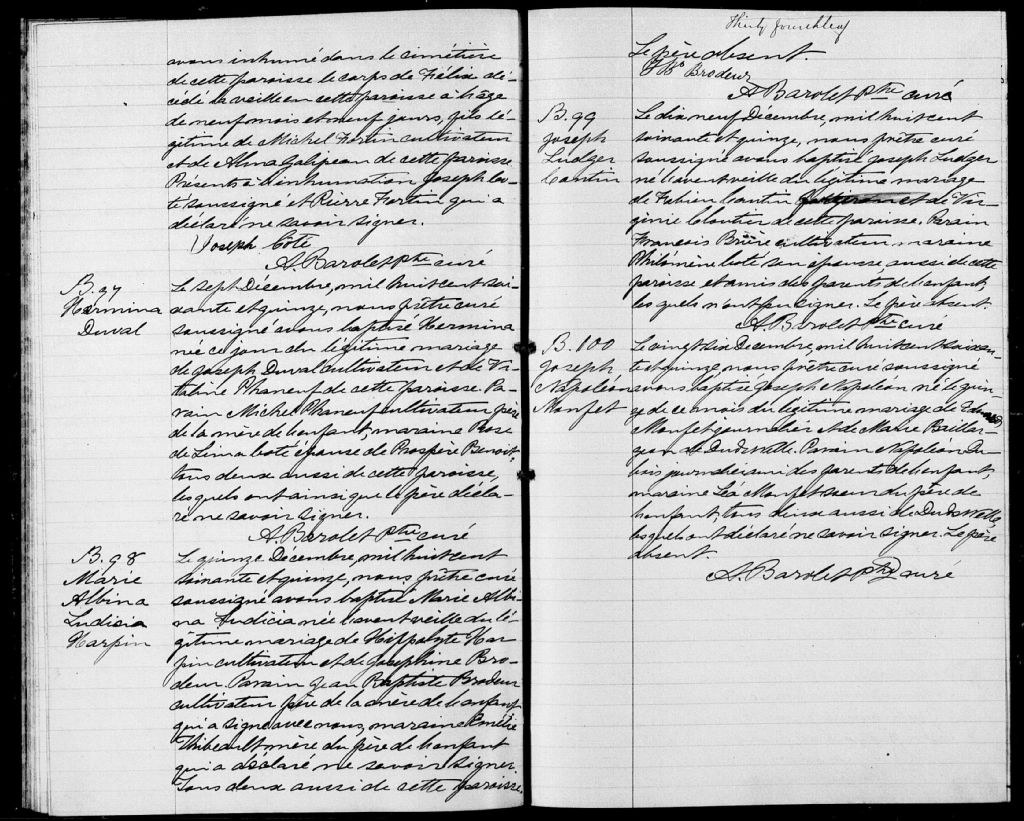 avons inhumé dans le cimétière
de cette paroisse le corps de Félix dé-
cédé la veille en cette paroisse à l'âge
de neuf mois et neuf jours, fils lé-
gitime de Michel Fortin cultivateur
et de Alma Galipeau de cette paroisse
Présents à l'inhumation Joseph Co-
té soussigné et Pierre Fortin qui a
déclaré ne savoir signer.
Joseph Côté
A. Barolet ptre curé
B. 97
Hermina
Duval
Le sept Décembre, mil huit cent soi-
xante et quinze, nous prêtre curé
soussigné avons baptisé Hermina
née ce jour du légitime mariage
de Joseph Duval cultivateur et de Vi-
taline Phaneuf de cette paroisse. Pa-
rain Michel Phaneuf cultivateur père
de la mère de l'enfant, maraine Rose
de Lima Coté épouse de Prospère Benoit,
tous deux aussi de cette paroisse,
lesquels ont ainsi que le père décla-
ré ne savoir signer.
A. Barolet ptre curé
B. 98
Marie
Albina
Ludicia
Harpin
Le quinze Décembre, mil huit cent
soixante et quinze, nous prêtre curé
soussigné avons baptisé Marie Albi-
na Ludicia née l'avant veille du lé-
gitime mariage de Hippolyte Har-
pin cultivateur et de Josephine Bro-
deur. Parain Jean Baptiste Brodeur
cultivateur père de la mère de l'enfant
qui a signé avec nous, maraine Emélie
Thibeault mère du père de l'enfant
qui a déclaré ne savoir signer.
Tous deux aussi de cette paroisse.
Thirty fourth leaf
Le père absent.
J Bte Brodeur
A Barolet ptre curé
B. 99
Joseph
Ludger
Cantin
Le dix neuf Décembre, mil huit cent
soixante et quinze, nous prêtre curé
soussigné avons baptisé Joseph Ludger
né l'avant veille du légitime mariage
de Fabien Cantin et de Vir-
ginie Cloutier de cette paroisse. Parain
François Brière cultivateur maraine
Philomène Coté son épouse, aussi de cette
paroisse et amis des parents de l'enfant,
lesquels n'ont pu signer. Le père absent.
A Barolet ptre curé
B. 100
Joseph
Napoléon
Monfet
Le vingt six Décembre, mil huit cent soixan-
te et quinze, nous prêtre curé soussigné
avons baptisé Joseph Napoléon né le quin-
ze de ce mois du légitime mariage de Edouard
Monfet journalier et de Marie Baillar-
geon de Dudswelle. Parain Napoléon Du-
bois journalier ami des parents de l'enfant,
maraine Léa Monfet soeur du père de
l'enfant, tous deux aussi de Dudswelle,
lesquels ont déclaré ne savoir signer. Le père
absent.
A. Barolet ptre curé